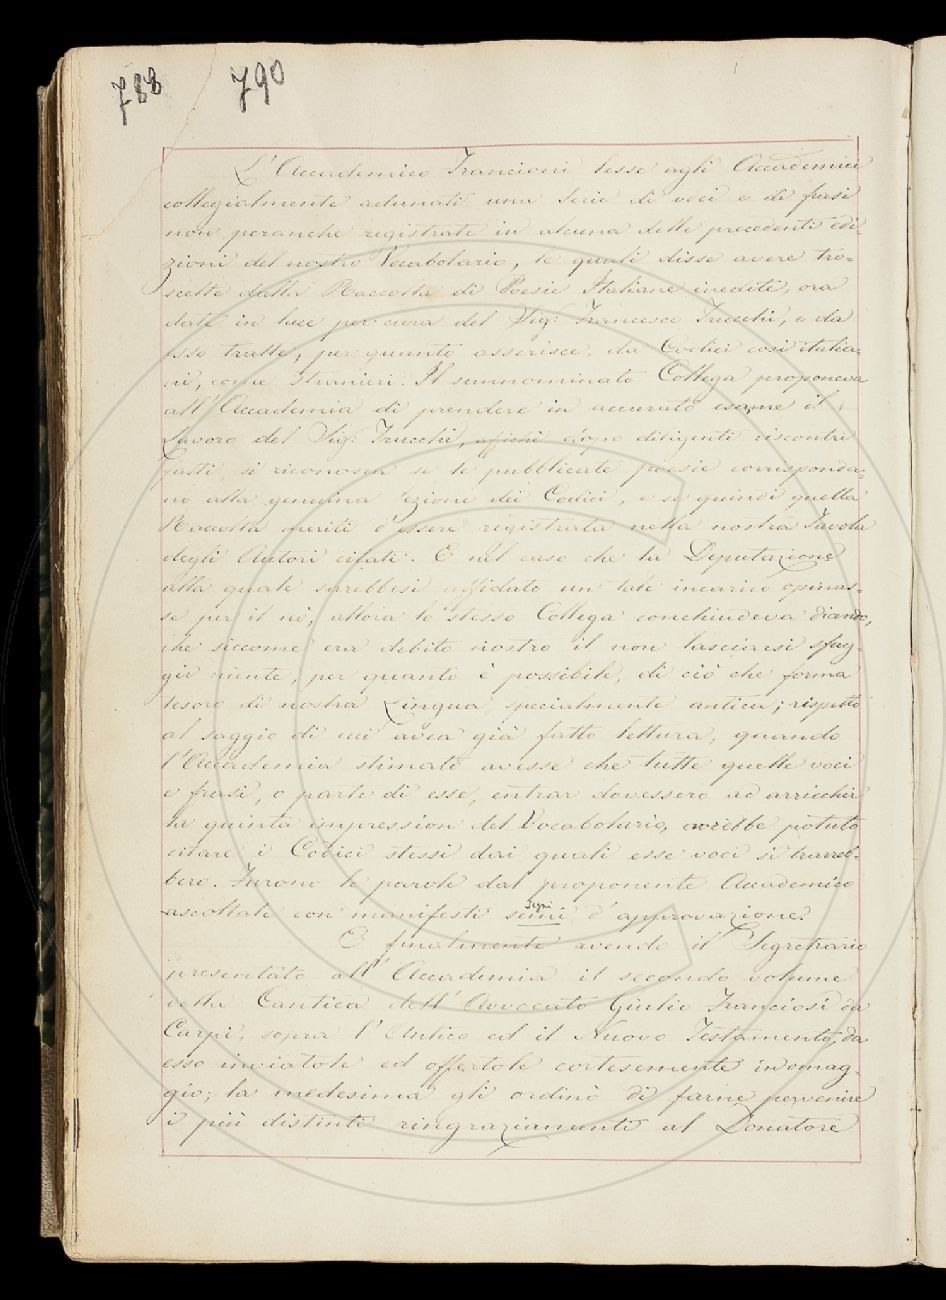 788 790
L'Accademico Francioni lesse agli Accademici
collegialmente adunati una serie di voci e di frasi
non peranche registrate in alcuna delle precedenti edi-
zioni del nostro Vocabolario, le quali disse avere tra=
scelte dalla Raccolta di Poesie Italiane inedite, ora
date in luce per cura del Sig: Francesco Trucchi, e da
esso tratte, per quanto asserisce, da Codici così italia-
ni, come stranieri. Il sunnominato Collega proponeva
all'Accademia di prendere in accurato esame il
Lavoro del Sig: Trucchi, affichè dopo diligenti riscontri
fatti, si riconosca se le pubblicate poesie corrisponda-
no alla genuina lezione dei Codici, e se quindi quella
Raccolta meriti d'essere registrata nella nostra Tavola
degli Autori citati. E nel caso che la Deputazione
alla quale sarebbesi affidato un tale incarico opinas-
se per il nò, allora lo stesso Collega conchiudeva dicendo,
che siccome era debito nostro il non lasciarsi sfug-
gir niente, per quanto è possibile, di ciò che forma
tesoro di nostra Lingua, specialmente antica; rispetto
al saggio di cui avea già fatto lettura, quando
l'Accademia stimato avesse che tutte quelle voci
e frasi, o parte di esse, entrar dovessero ad arricchir
la quinta impression del Vocabolario, avrebbe potuto
citare i Codici stessi dai quali esse voci si trarreb-
bero. Furono le parole del proponente Accademico
ascoltate con manifesti semi segni d'approvazione.
E finalmente avendo il Segretario
presentato all'Accademia il secondo volume
della Cantica dell'Avvocato Giulio Franciosi da
Carpi, sopra l'Antico ed il Nuovo Testamento, da
esso inviatole ed offertole cortesemente in omag-
gio; la medesima gli ordinò di farne pervenire
i più distinti ringraziamenti al Donatore